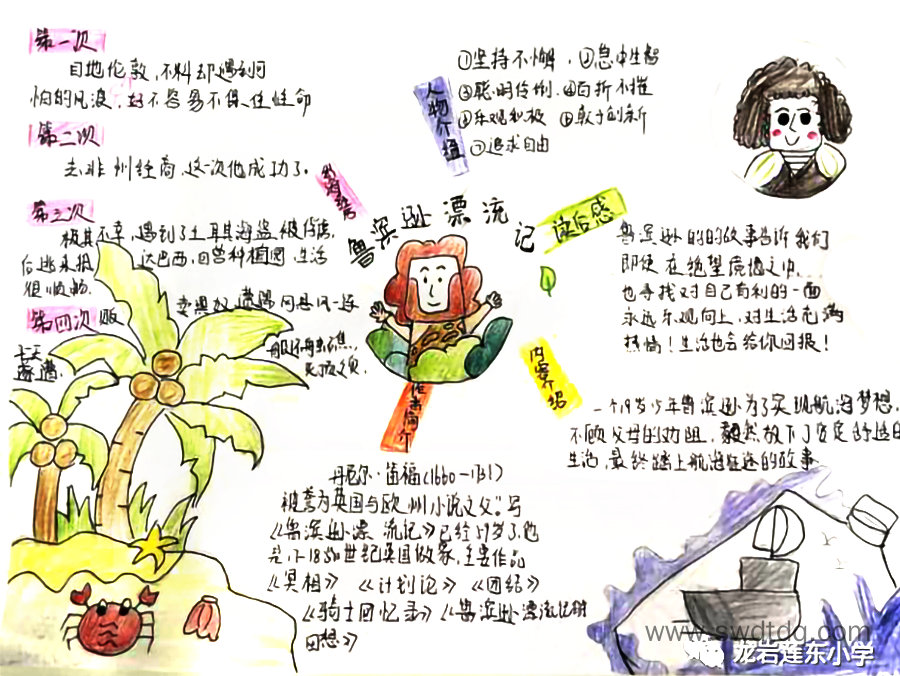 鲁滨逊漂流记
第一次
目地伦敦,不料却遇到可
怕的风波,好不容易不保住性命
第二次
去非州经商,这一次他成功了。
第三次
极其不幸,遇到了土耳其海盗被俘虏,
后逃来报
达巴西,自营种植园,生活
很顺畅.
第四次
贩
卖黑奴 遭遇
七天
逐遭.
①坚持不懈,②急中生智
③聪明伶俐,④百折不挠
⑤乐观积极 ⑥敢于创新
⑦追求自由
人物介绍
读后感
鲁滨逊的的故事告诉我们
即使在绝望境地之中.
也寻找对自己有利的一面
永远乐观向上,对生活充满
热情!生活也会给你回报!
内容介绍
一个19岁少年鲁滨逊为了实现航海梦想,
不顾父母的劝阻,毅然放下了安定舒适的
生活,最终踏上航海征途的故事
作者简介
丹尼尔·笛福(1660-1731)
被誉为英国与欧州小说之父".写
《鲁滨逊漂流记》已经59岁了.他
是17-18世纪英国做家,主要作品
《冥相》 《计划论》 《团结》
《骑士回忆录》《鲁滨逊漂流记的
回想》
www.swdtdq.com
龙岩莲东小学